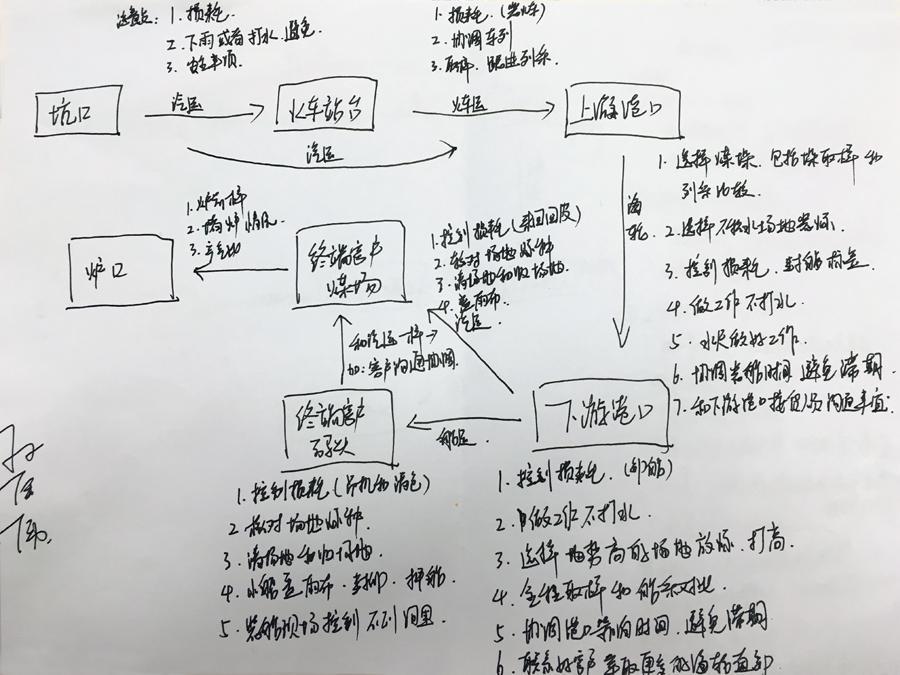 注意点：1. 损耗.
2. 下雨或者打水，避免
3. 安全事项.
1. 损耗.（装车）
2. 协调车列
3. 取样，跟进列系
坑口
汽运
火车站台
火车运
上游港口
汽运
海轮
1. 选择煤垛. 包括垛取样和
列系比较.
2. 选择不积水场地装煤.
3. 控制损耗，封舱标签.
4. 做工作不打水.
5. 水尺做好工作.
6. 协调装船时间 避免滞期.
7. 和下游港口接货人员沟通事宜.
1. 炉前样
2. 烧炉情况.
3.
炉口
终端客户
煤场
1. 控制损耗（来回回皮）
2. 核对场地煤种
3. 清场地和归场地.
4. 盖雨布.
汽运.
和汽运一样→
如：客户沟通协调.
终端客户
码头
船运.
下游港口
1. 控制损耗（吊机和清仓）
2. 核对场地煤种.
3. 清场地和归场地.
4. 小船盖雨布. 封仰. 押船.
5. 装船现场控制不到洞里
1. 控制损耗.（卸船）
2. 做工作不打水.
3. 选择地势高的场地放煤. 打高.
4. 全程取样和船系对比
5. 协调港口靠泊时间. 避免滞期
6. 联系好客户争取更多的海轮直卸